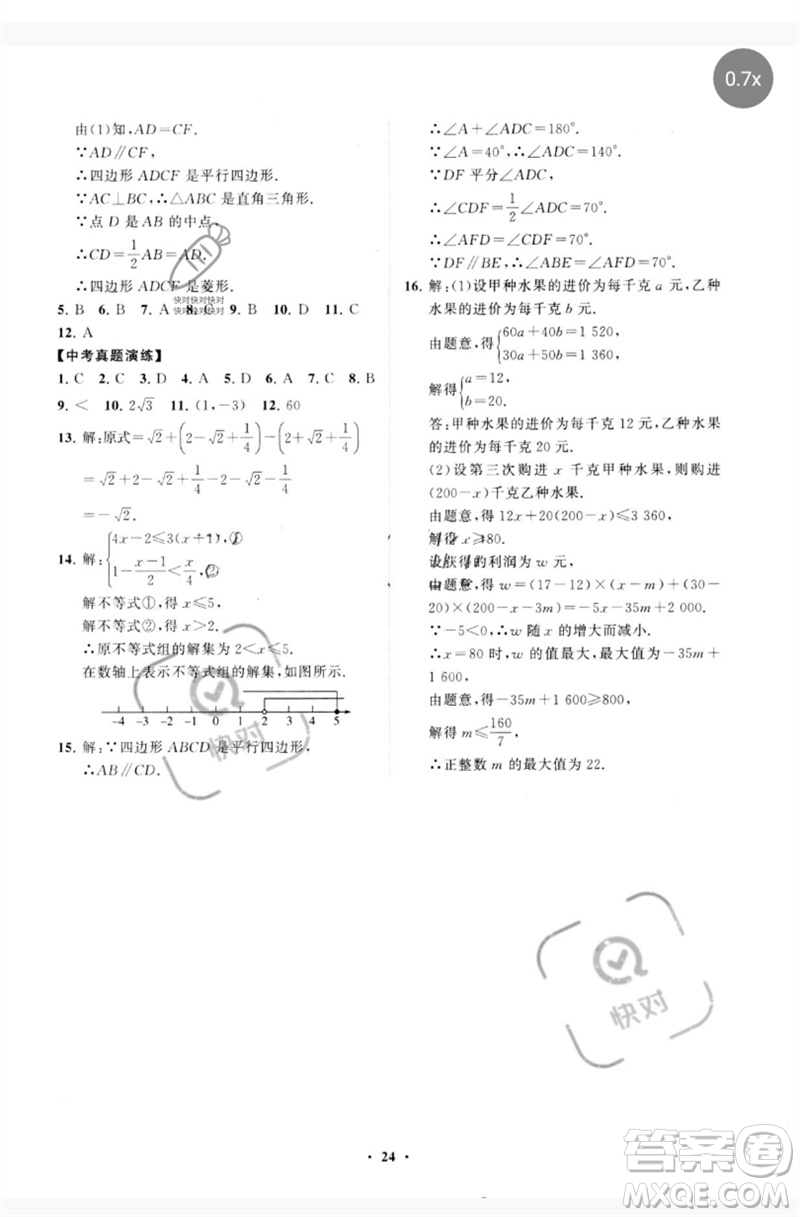 0.7x
由(1)知,AD=CF.
∵AD∥CF,
∴四边形 ADCF 是平行四边形.
∵AC⊥BC,∴△ABC 是直角三角形.
∵点 D 是 AB 的中点,
∴CD=1/2AB=AD.
∴四边形 ADCF 是菱形.
快对快对快对
快对快对快对
5. B 6. B 7. A 8. C 9. B 10. D 11. C
12. A
【中考真题演练】
1. C 2. C 3. D 4. A 5. A 6. C 7. C 8. B
9. < 10. 2√3 11. (1,-3) 12. 60
13. 解:原式=√2+(2-√2+1/4)-(2+√2+1/4)
=√2+2-√2+1/4-2-√2-1/4
=-√2.
14. 解:{4x-2≤3(x+1),①
1-(x-1)/2<x/4,②
解不等式①,得 x≤5.
解不等式②,得 x>2.
∴原不等式组的解集为 2<x≤5.
在数轴上表示不等式组的解集,如图所示.
-4 -3 -2 -1 0 1 2 3 4 5
15. 解:∵四边形 ABCD 是平行四边形,
∴AB∥CD.
∴∠A+∠ADC=180°.
∵∠A=40°,∴∠ADC=140°.
∵DF 平分∠ADC,
∴∠CDF=1/2∠ADC=70°.
∴∠AFD=∠CDF=70°.
∵DF∥BE,∴∠ABE=∠AFD=70°.
16. 解:(1)设甲种水果的进价为每千克 a 元,乙种
水果的进价为每千克 b 元.
由题意,得{60a+40b=1 520,
30a+50b=1 360,
解得{a=12,
b=20.
答:甲种水果的进价为每千克 12 元,乙种水果
的进价为每千克 20 元.
(2)设第三次购进 x 千克甲种水果,则购进
(200-x)千克乙种水果.
由题意,得 12x+20(200-x)≤3 360,
解得 x≥80.
设获得的利润为 w 元,
由题意,得 w=(17-12)×(x-m)+(30-
20)×(200-x-3m)=-5x-35m+2 000.
∵-5<0,∴w 随 x 的增大而减小.
∴x=80 时,w 的值最大,最大值为-35m+
1 600,
由题意,得-35m+1 600≥800,
解得 m≤160/7,
∴正整数 m 的最大值为 22.
快对
快对
· 24 ·
答案圈
MXQE.COM